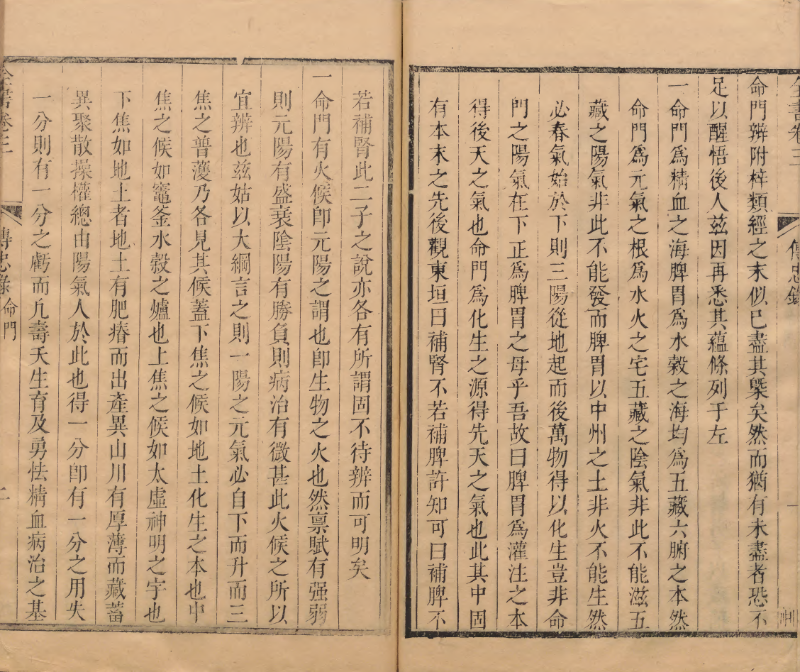 全書卷三
傳忠錄
一
命門辨附梓類經之末似已盡其槩矣然而猶有未盡者恐不
足以醒悟後人茲因再悉其蘊條列于左
一命門爲精血之海脾胃爲水穀之海均爲五藏六腑之本然
命門爲元氣之根爲水火之宅五藏之陰氣非此不能滋五
藏之陽氣非此不能發而脾胃以中州之土非火不能生然
必春氣始於下則三陽從地起而後萬物得以化生豈非命
門之陽氣在下正爲脾胃之母乎吾故曰脾胃爲灌注之本
得後天之氣也命門爲化生之源得先天之氣也此其中固
有本末之先後觀東垣曰補腎不若補脾許知可曰補脾不
若補腎此二子之說亦各有所謂固不待辨而可明矣
一命門有火候卽元陽之謂也卽生物之火也然禀賦有强弱
則元陽有盛衰陰陽有勝負則病治有微甚此火候之所以
宜辨也茲姑以大綱言之則一陽之元氣必自下而升而三
焦之普濩乃各見其候蓋下焦之候如地土化生之本也中
焦之候如竈釜水穀之爐也上焦之候如太虛神明之宇也
下焦如地土者地土有肥瘠而出產異山川有厚薄而藏蓄
異聚散操權總由陽氣人於此也得一分卽有一分之用失
一分則有一分之虧而凢壽夭生育及勇怯精血病治之基
全書卷三
傳忠錄 命門
二